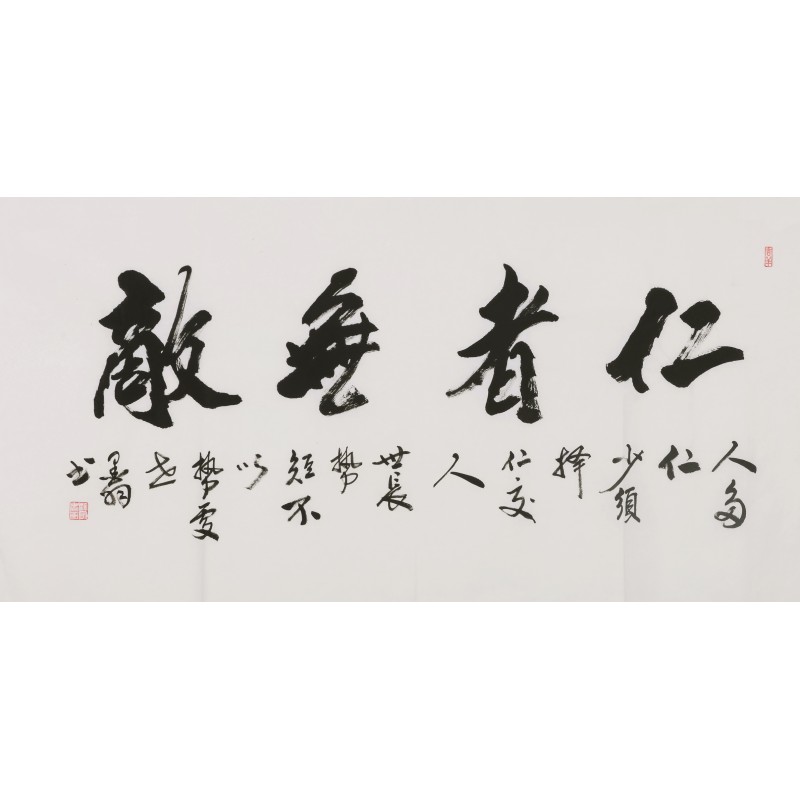 仁者無敵
人多
仁
少須
擇
仁交
人
世長
勢
短不
以
勢處
世
墨翁
书